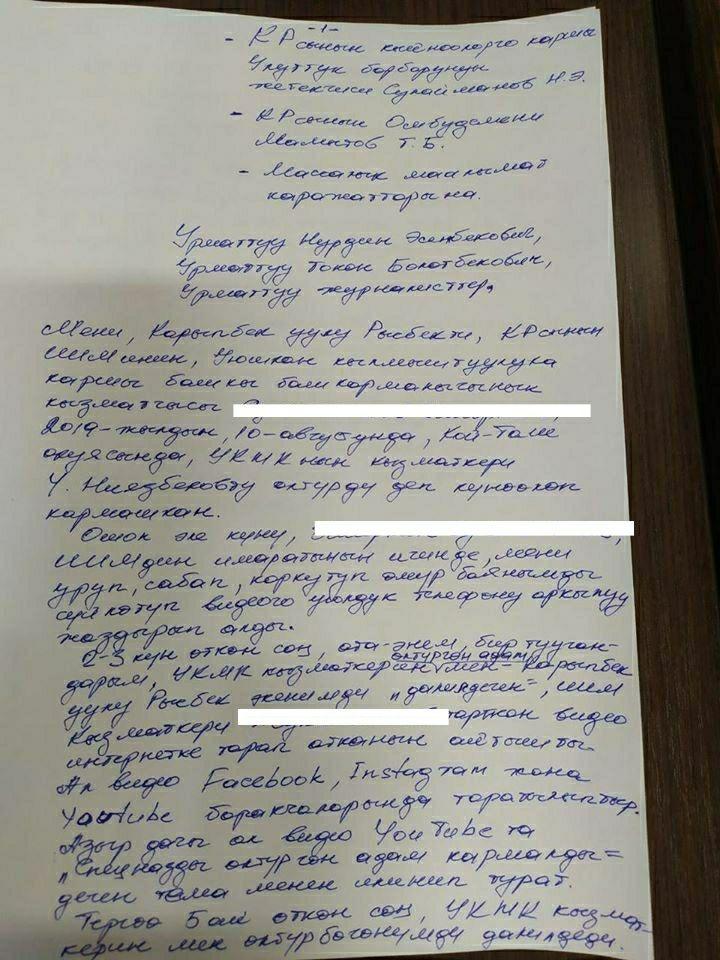 -1-
- КРсынын кыйноолорго каршы
Улуттук борборунун
жетекчиси Сулайманов Н.Э.
- КРсынын Омбудсмени
Маматов Т.Б.
- Массалык маалымат
каражаттарына.
Урматтуу Нурдин Эсенбекович,
Урматтуу Токон Болотбекович,
Урматтуу журналисттер,
Мени, Карыпбек уулу Рысбекти, КРсынын
ШИМинин, Уюшкан кылмыштуулукка
каршы башкы башкармалыгынын
кызматчысы
2019-жылдын, 10-августунда, Кой-Таш
окуясында, УКМКнын кызматкери
У. Ниязбековту өлтүрдү деп күнөөлөп
кармашкан.
Ошол эле күнү,
ШИМдин имаратынын ичинде, мени
уруп, сабап, коркутуп өмүр баянымды
сүйлөтүп видеого уюлдук телефону аркылуу
жаздырып алды.
2-3 күн өткөн соң, ата-энем, бир тууган-
дарым, УКМК кызматкерин өлтүргөн адам мен - Карыпбек
уулу Рысбек экенимди "далилдеген", ШИМ
кызматкери тарткан видео
интернетке тарап атканын айтышты.
Ал видео Facebook, Instagram жана
YouTube баракчаларында таратылыптыр.
Азыр дагы ал видео YouTube та
"Спецназды өлтүргөн адам кармалды"
деген тема менен илинип турат.
Тергөө 5 ай өткөн соң, УКМК кызмат-
керин мен өлтүрбөгөнүмдү далилдеди.